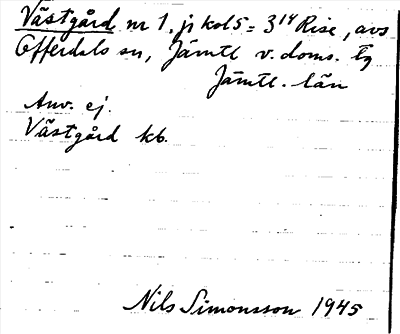 Västgård nr 1, ji kol5 = 3¹⁴ Rise, avs
Offerdals sn, Jämtl v. doms. tg
Jämtl. län
Anv. ej.
Västgård kb.
Nils Simonsson 1945